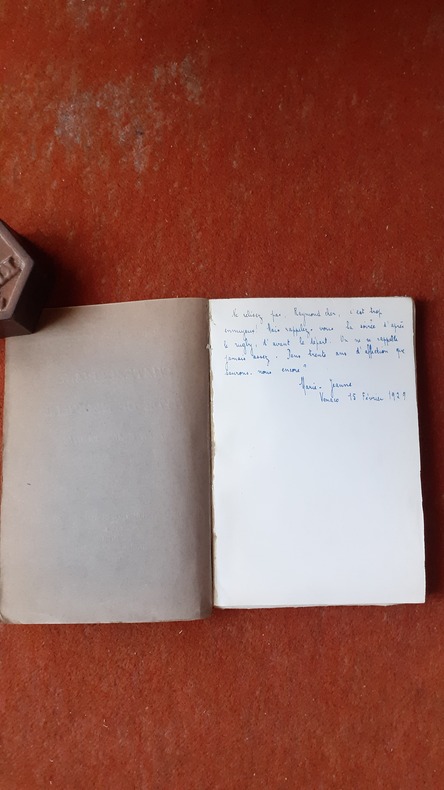 Ne relisez pas, Raymond cher, c'est trop
ennuyeux. Mais rappelez-vous. La soirée d'après
le rugby, d'avant le départ. On ne se rappelle
jamais assez. Dans trente ans d'affection que
saurons-nous encore ?
Marie-Jeanne
15 Février 1929